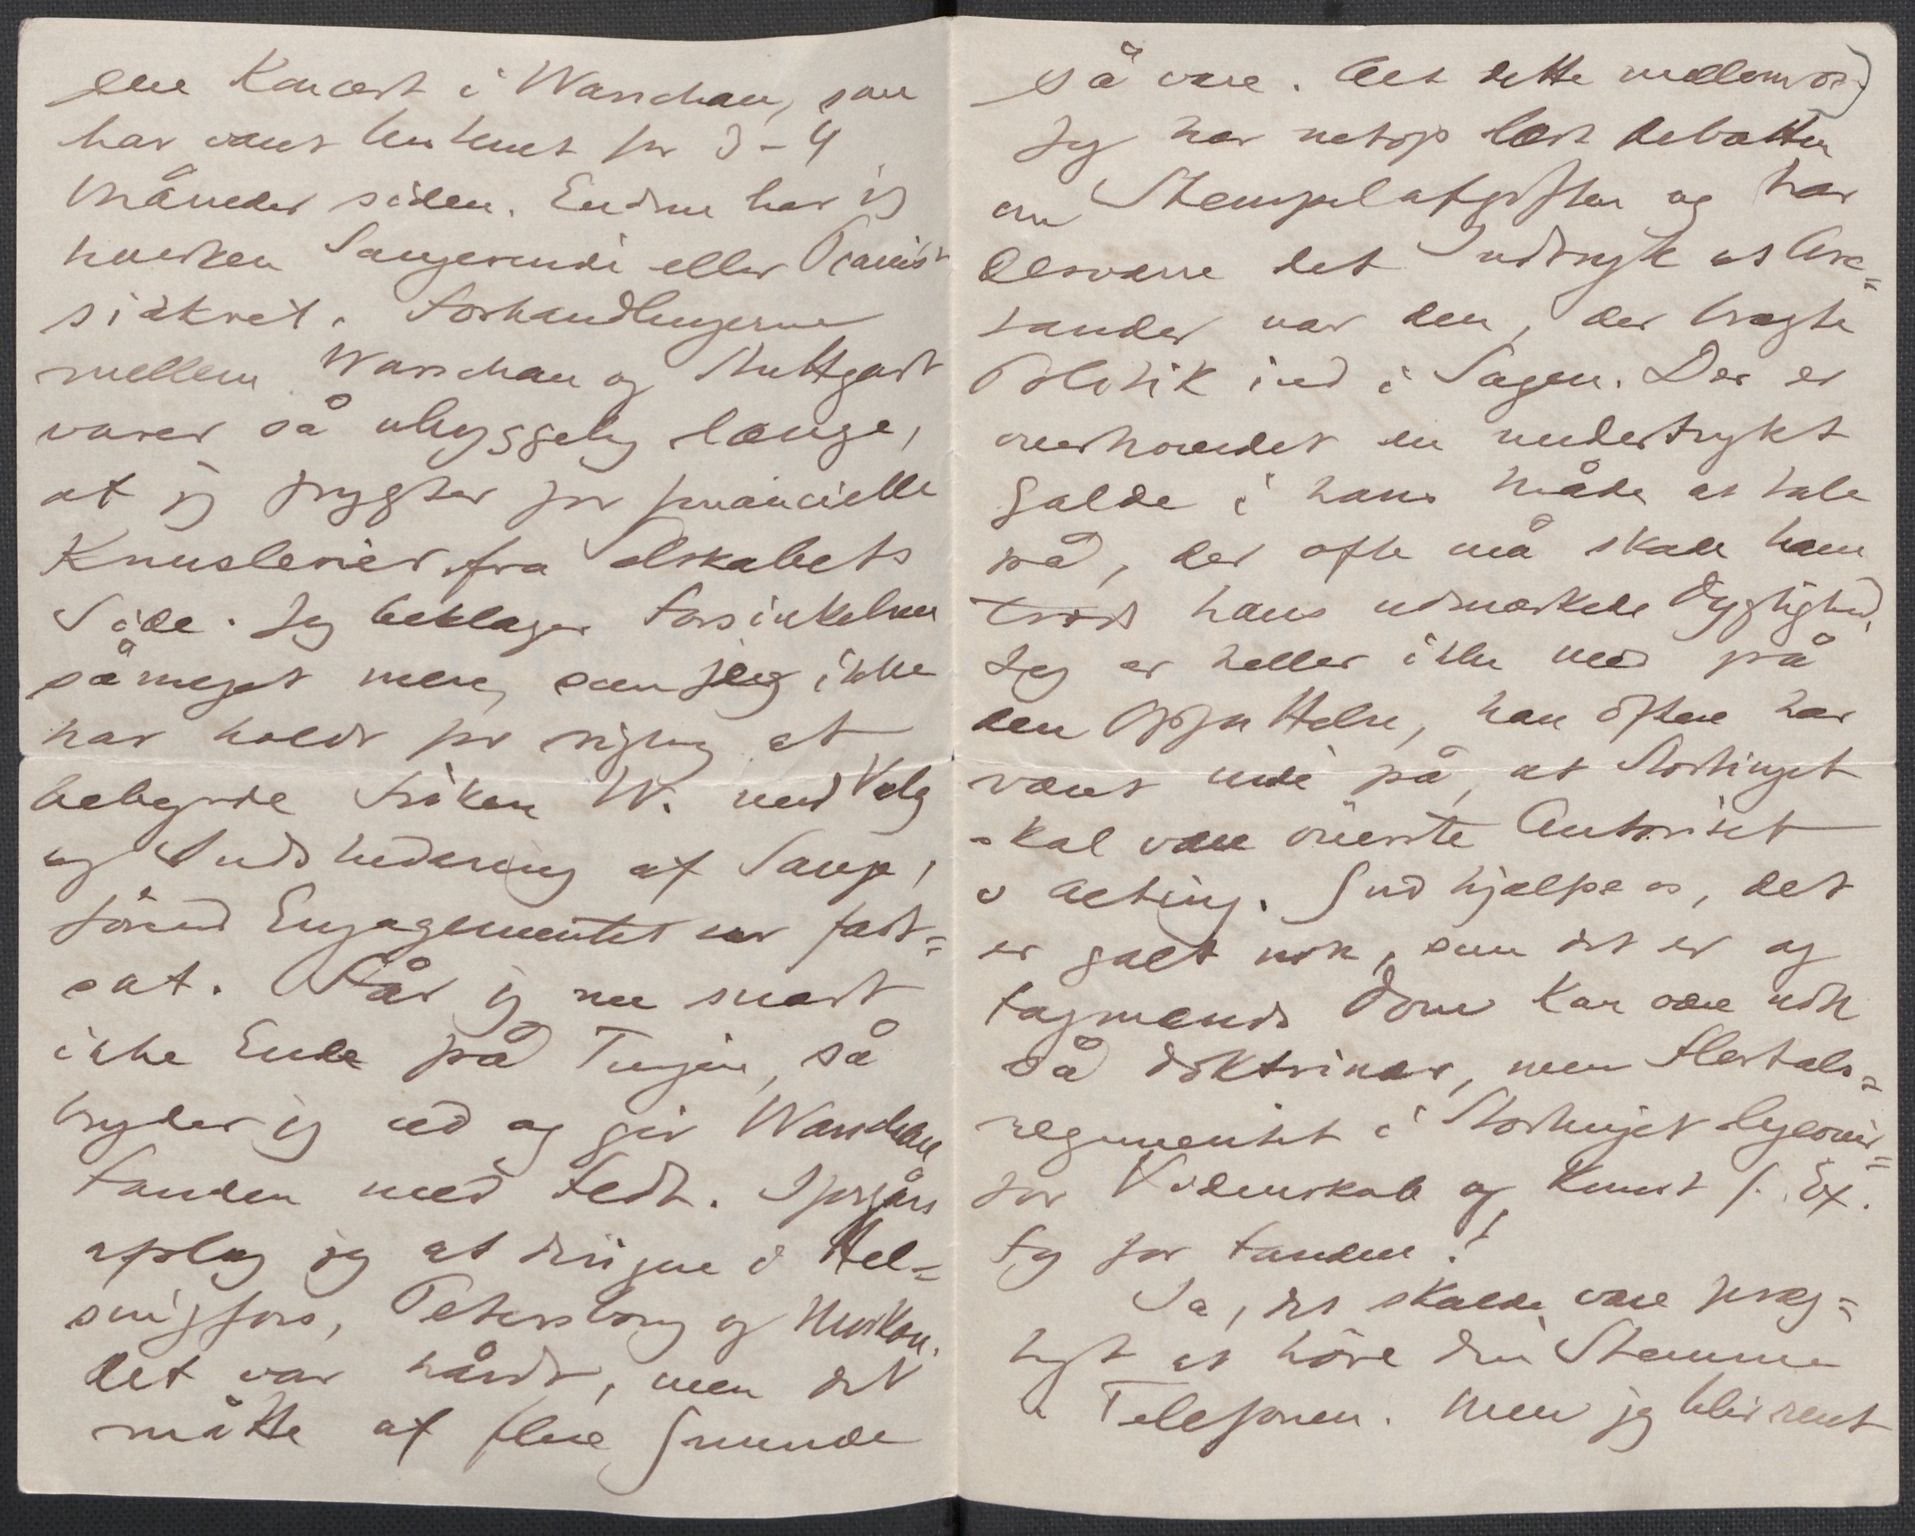 ene Koncert i Warschau, som
har været bestemt for 3-4
Måneder siden. Endnu har jeg
hverken Sangerinde eller Pianist
sikret. Forhandlingerne
mellem Warschau og Stuttgart
varer så uhyggelig længe,
at jeg frygter for financielle
Knuslerier fra Selskabets
Side. Jeg beklager Forsinkelsen
såmeget mere, som jeg ikke
har holdt for rigtig at
bebyrde Frøken W. med Valg
og Indstudering af Sange,
førend Engagementet var fast=
sat. Får jeg nu snart
ikke Ende på Tingene, så
bryder jeg ud og gir Warschau
Fanden med Fedt. Iforgårs
afslog jeg at dirigere i Hel=
singfors, Petersborg og Moskau.
Det var hårdt, men det
måtte af flere Grunde
så være. (Alt dette mellem os.)
Jeg har netop læst Debatten
om Stempelafgiften og har
desværre det Indtryk at Arc=
tander var den, der bragte
Politik ind i Sagen. Der er
overhovedet en undertrykt
Galde i hans Måde at tale
på, der ofte må skade ham
trods hans udmærkede Dygtighed.
Jeg er heller ikke med på
den Opfattelse, han oftere har
været inde på, at Storthinget
skal være øverste Autoritet
i Alting. Gud hjælpe os, det
er galt nok, som det er og
Fagmænds Dom kan være nok
så doktrinær, men Flertals=
regimentet i Storthinget ligeover=
for Videnskab og Kunst f. Ex.
Fy for Fanden!
Ja, det skulde være præg=
tigt at høre din Stemme
i Telefonen. Men jeg blir rent